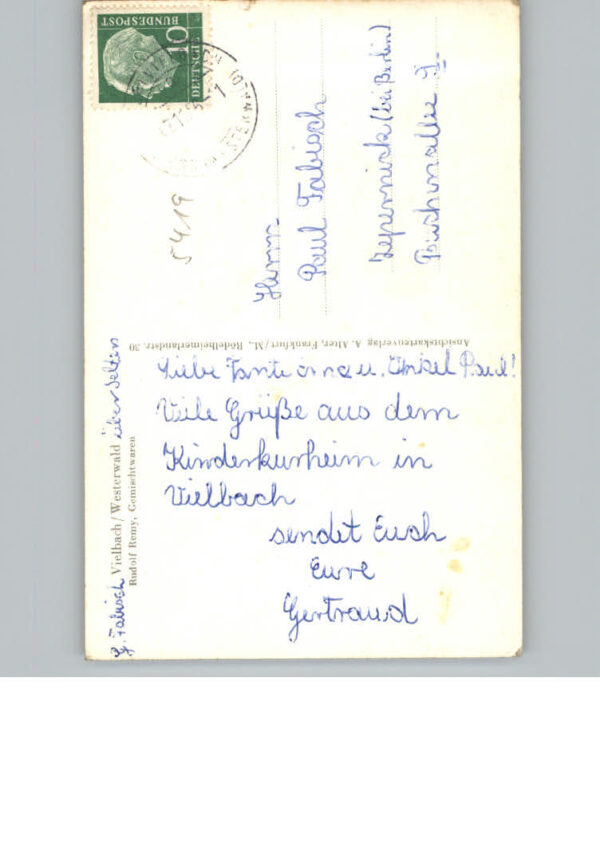 Liebe Tante Anna u. Onkel Paul!
Viele Grüße aus dem
Kinderkurheim in
Vielbach
sendet Euch
Eure
Gertraud
Herrn
Paul Fabisch
Zepernick (bei Berlin)
Buchenallee 9
G. Fabisch Vielbach/Westerwald über Selters
Rudolf Remy, Gemischtwaren
Ansichtskartenverlag A. Alter, Frankfurt/M., Rödelheimerlandstr. 30
5419
DEUTSCHE
BUNDESPOST
10